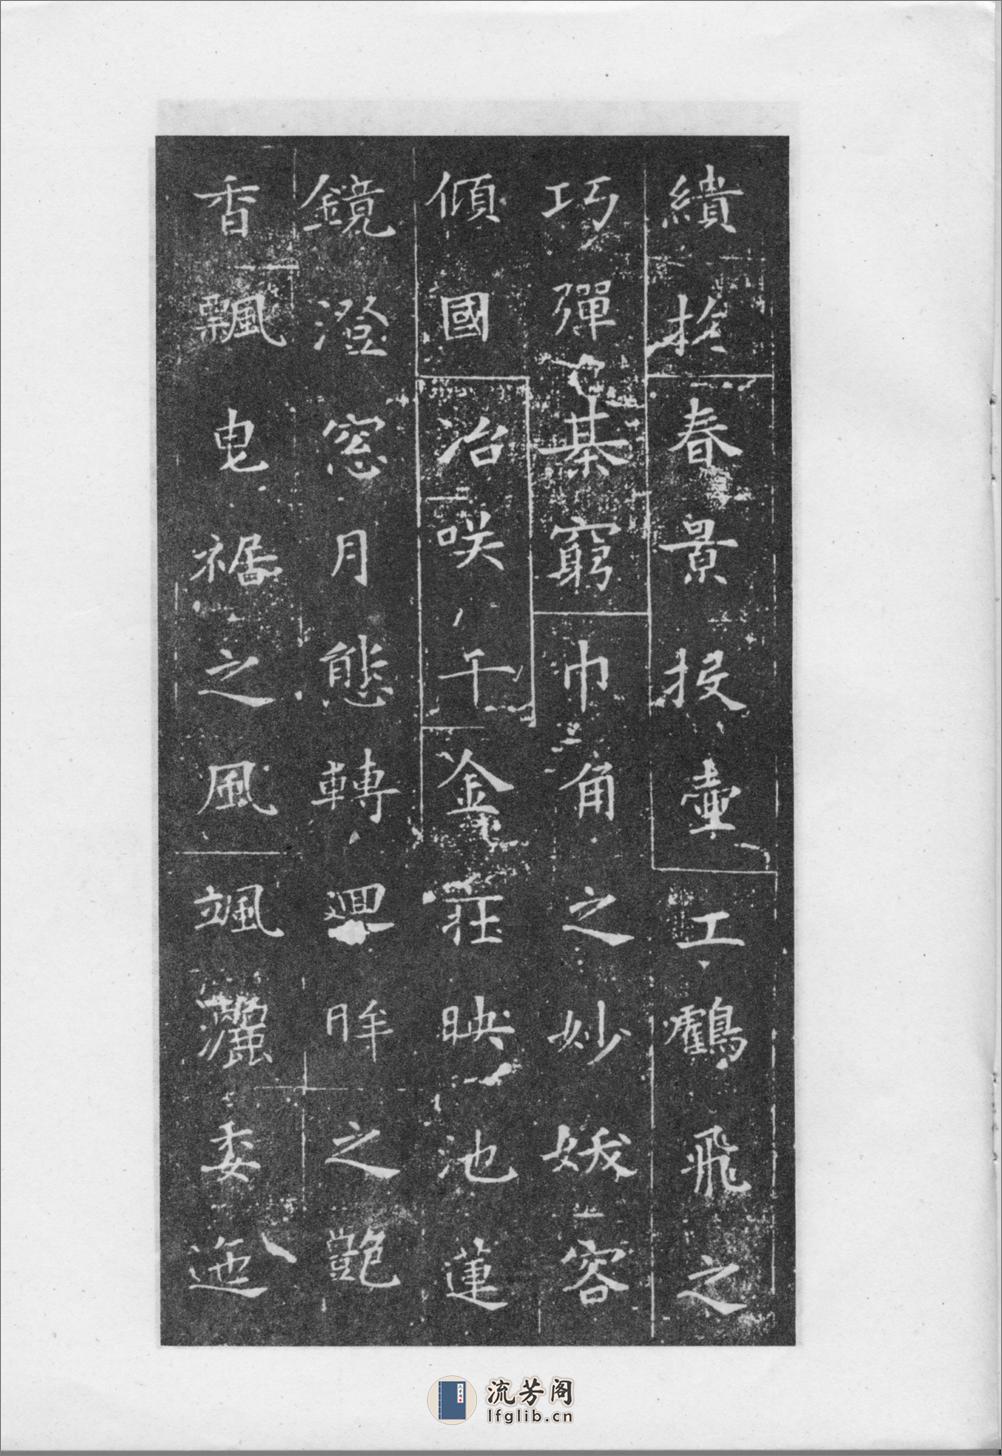 繢扵春景投壷工鸖飛之
巧彈棊窮巾角之妙娥容
傾國冶咲千金莊映池蓮
鏡澄窓月態轉迴眸之艶
香飄曳裾之風颯灑委迤
流芳阁
lfglib.cn